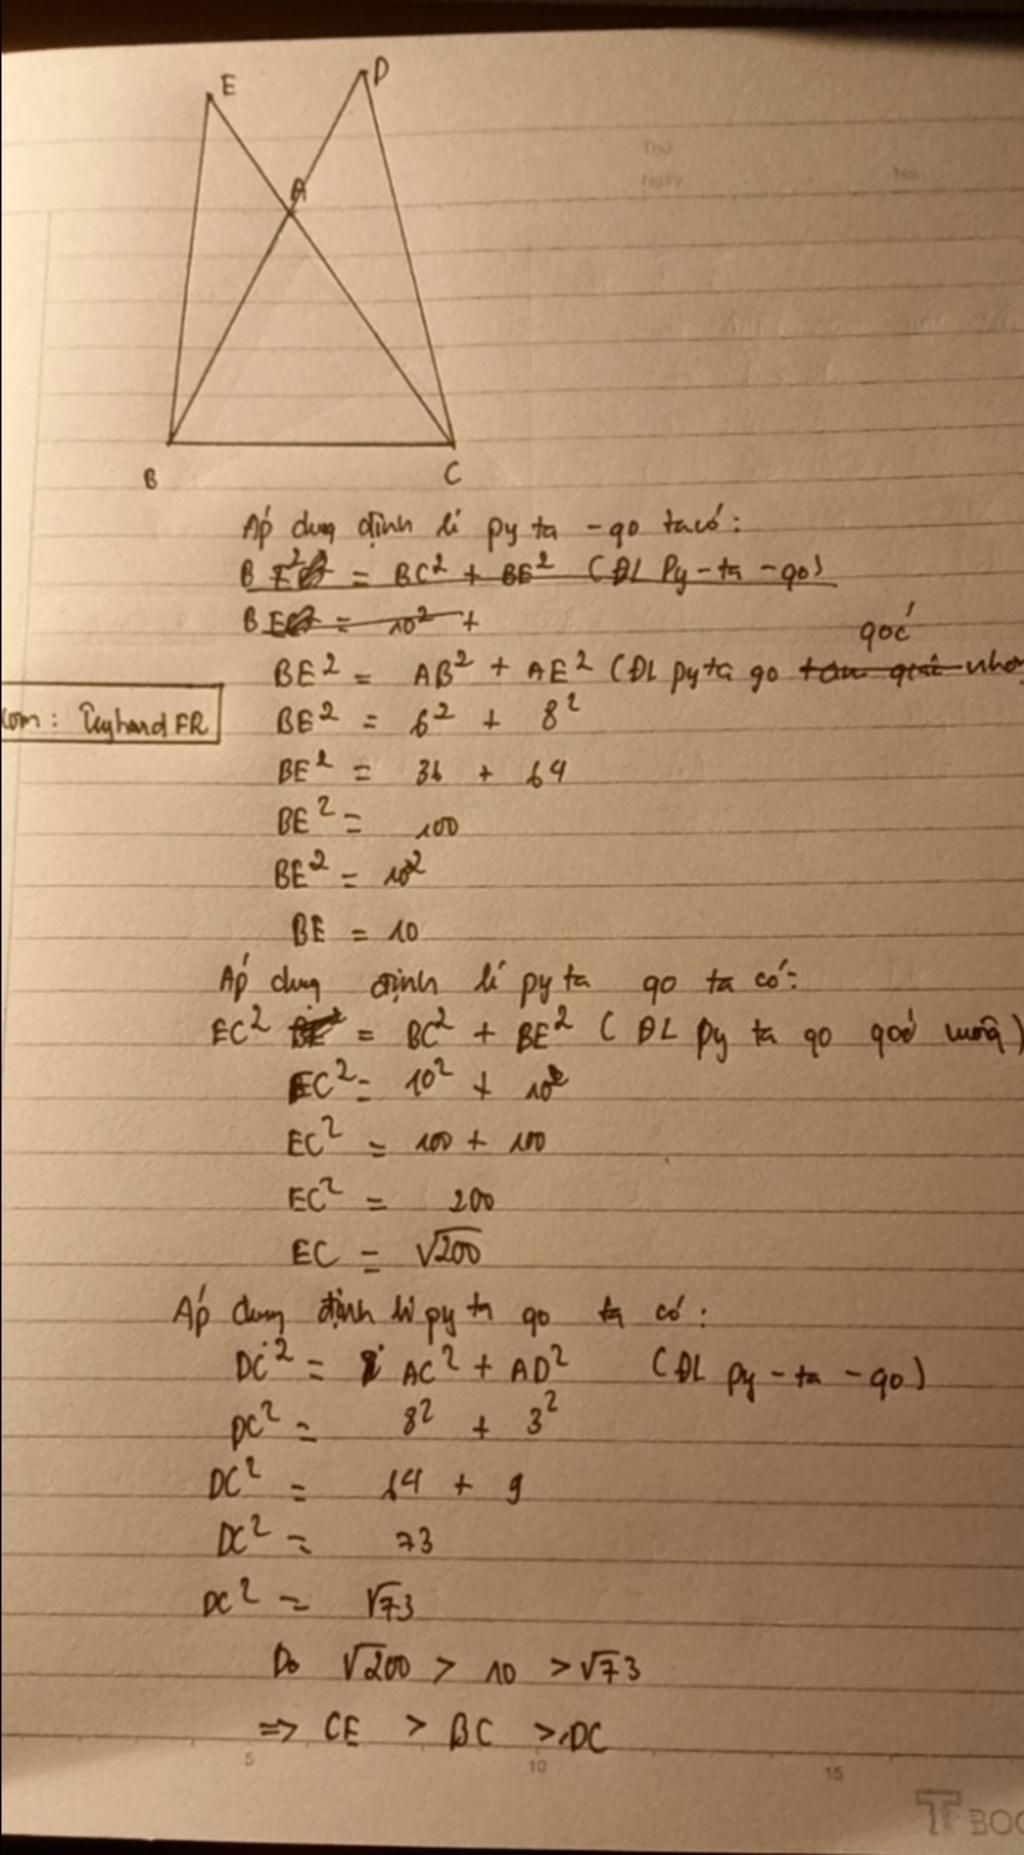 E
D
A
Thứ
Ngày
No.
B
C
Áp dụng định lí py ta - go ta có:
BE² = BC² + BE² (ĐL Py - ta - go)
BE = 10² +
góc
BE² = AB² + AE² (ĐL py ta go tam giác nhọn
com: TuyhardFR
BE² = 6² + 8²
BE² = 36 + 64
BE² = 100
BE² = 10²
BE = 10
Áp dụng định lí py ta go ta có:
EC² = BC² + BE² (ĐL Py ta go góc vuông)
EC² = 10² + 10²
EC² = 100 + 100
EC² = 200
EC = √200
Áp dụng định lí py ta go ta có:
DC² = AC² + AD² (ĐL py - ta - go)
DC² = 8² + 3²
DC² = 64 + 9
DC² = 73
DC² = √73
Do √200 > 10 > √73
=> CE > BC > DC
5
10
15